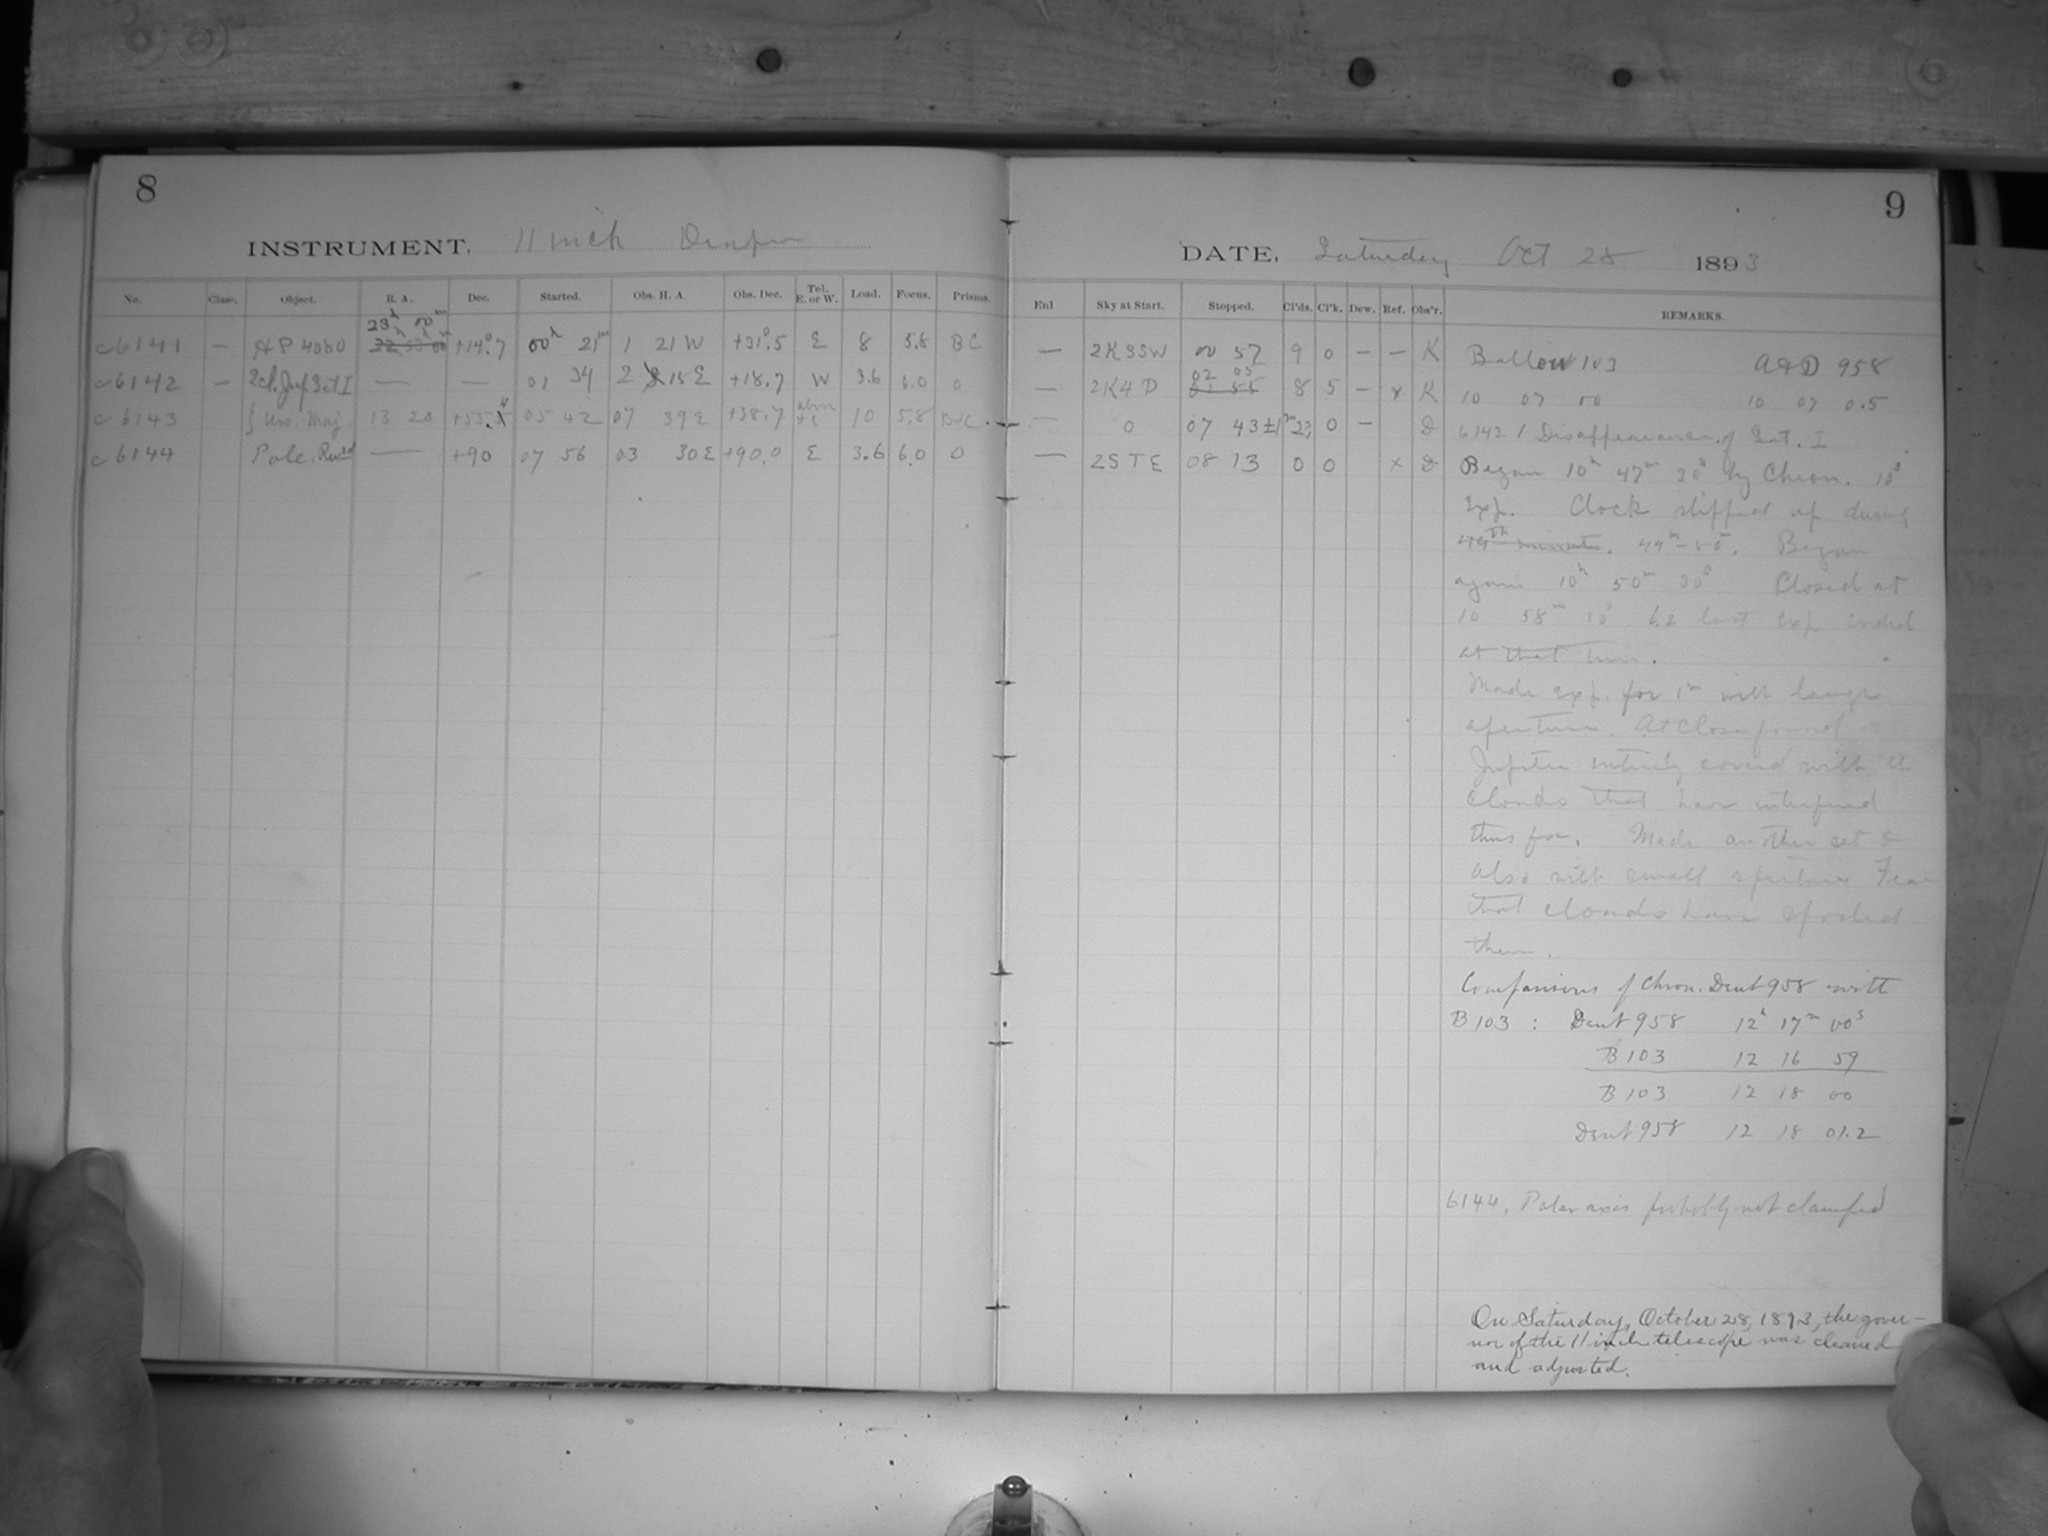 8
INSTRUMENT. 11 inch Draper
No. Class. Object. R. A. Dec. Started. Obs. H. A. Obs. Dec. Tel. E. or W. Load. Focus. Prisms.
23h 00m
c 6141 — HP 4080 +14°.7 00h 21m 1 21 W +31°.5 E 8 5.8 BC
c 6142 — Ecl. Jup Sat I — — 01 34 2 15 E +18.7 W 3.6 6.0 0
c 6143 ζ Urs. Maj. 13 20 05 42 07 39 E +38.7 10 5.8
c 6144 Pole, — +90 07 56 03 30 E +90.0 E 3.6 6.0 0
9
DATE. Saturday Oct 28 1893
Enl Sky at Start. Stopped. Cl'ds. Cl'k. Dew. Ref. Obs'r. REMARKS.
— 2K3SW 00 57 9 0 — — K
— 2K4D 02 05 8 5 — x K
— 0 07 43±1m 0 — D
— 2STE 08 13 0 0 x D
103 958
10 07 00 10 07 0.5
6142 / Disappearance of Sat. I
Began 10h 47m 30s by Chron. 10s
Exp. Clock slipped up during
49th minute. 49m–50. Began
again 10h 50m 30s Closed at
10 58m 10s last exp. ended
at that time.
Made exp. for 1m with large
aperture. At close found
Jupiter entirely covered with
clouds that have interfered
thus far. Made another set &
also with small aperture Fear
that clouds have spoiled
them.
Comparisons of Chron. Dent 958 with
B 103 : Dent 958 12h 17m 00s
B 103 12 16 59
B 103 12 18 00
Dent 958 12 18 01.2
6144. Polar axis probably not clamped
On Saturday, October 28, 1893, the gover-
nor of the 11 inch telescope was cleaned
and adjusted.